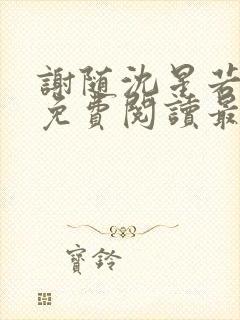 謝随沈星若
免費閱讀最
寶鈴